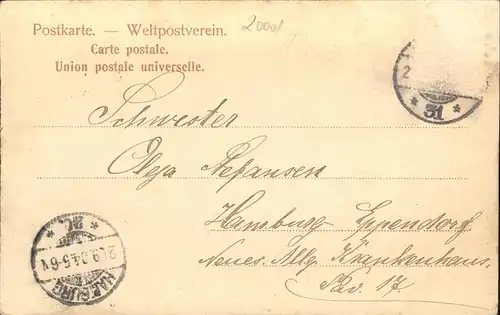 Postkarte. — Weltpostverein.
Carte postale.
Union postale universelle.
2000
2
* 31 *
Schwester
Olga Stefansen
Hamburg Eppendorf
Neues Allg. Krankenhaus.
Pav. 17.
HAMBURG